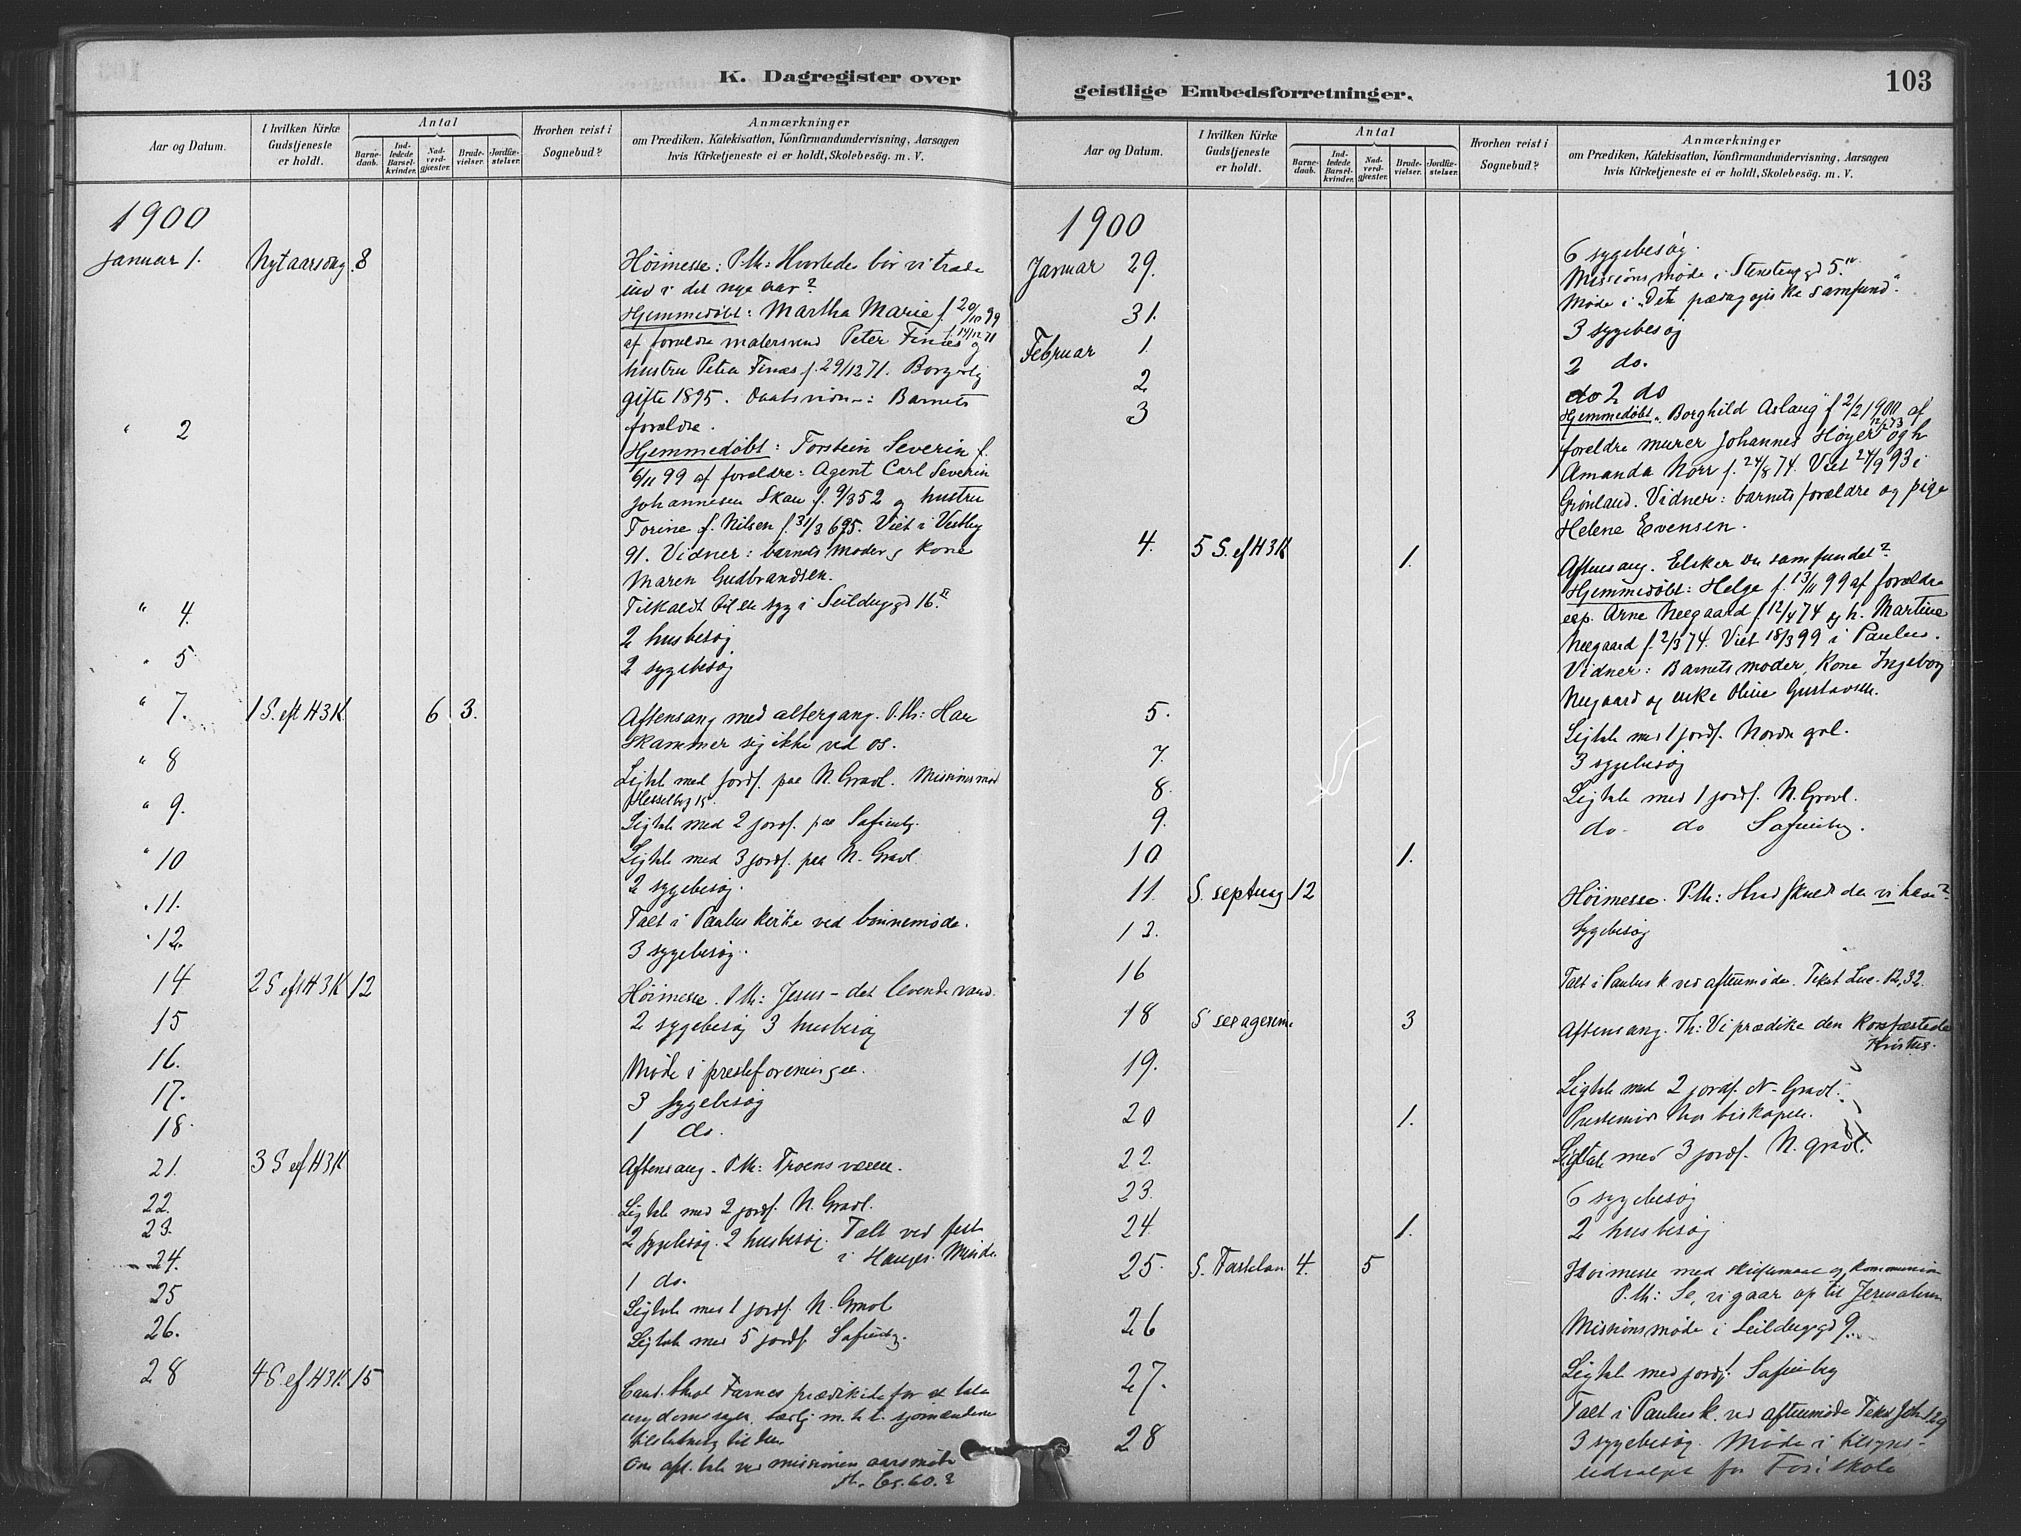 K. Dagregister over
Aar og Datum.
I hvilken Kirke
Gudstjeneste
er holdt.
Antal
Barne-
daab.
Ind-
ledede
Barsel-
kvinder.
Nad-
verd-
gjæster.
Brude-
vielser.
Jordfæ-
stelser.
Hvorhen reist i
Sognebud?
Anmærkninger
om Prædiken, Katekisation, Konfirmandundervisning, Aarsagen
hvis Kirketjeneste ei er holdt, Skolebesög. m. V.
1900
Januar 1. Nytaarsdag 8 Höimesse: P.Th: Hvorledes bör vi træde
ind i det nye aar?
Hjemmedöbt: Martha Marie f. 20/10 99
af forældre malersvend Peter Finæs f. 14/12 71 og
hustru Petra Finæs f. 29/12 71. Borgerlig
gifte 1895. : Barnets
forældre.
" 2 Hjemmedöbt: Torstein Severin f.
6/11 99 af forældre: Agent Carl Severin
Johannesen Skau f. 9/3 52 og hustru
Torine f. Nilsen f. 31/3 65. Viet i Vestby
91. Vidner: barnets moder og kone
Maren Gudbrandsen.
" 4. Tilkaldt til en syg i Seildugsgd 16. II
2 husbesög
" 5 2 sygebesög
" 7. 1 S. eft H3K. 6 3. Aftensang med altergang. P.Th: Han
skammer sig ikke ved os.
" 8 Ligtale med jordf. paa N. Gravl. Missionsmöd
Hesselbg 15.
" 9. Ligtale med 2 jordf. paa Sofienbg.
" 10 Ligtale med 3 jordf. paa N. Gravl.
2 sygebesög.
" 11. Talt i Paulus kirke ved bönnemöde.
" 12. 3 sygebesög.
14 2 S eft H3K 12 Höimesse. P.Th: Jesus – det levende vand.
15 2 sygebesög 3 husbesög
16. Möde i presteforeningen.
17. 3 sygebesög
18. 1 do.
21. 3 S eft H3K Aftensang. P.Th: Troens væsen.
22. Ligtale med 2 jordf. N. Gravl.
23. 2 sygebesög. 2 husbesög. Talt ved fest
i Hauges Minde
24. 1 do.
25 Ligtale med 1 jordf. N. Gravl
26. Ligtale med 5 jordf. Sofienbg.
28 4 S. ef H3K 15 Cand. theol Farnes prædikede for at tale
ungdomssagen, særlig m. h. t. sjömændene
tilslutning til den
Om aft. tale ved missionens aarsmöde
th. Es. 60. 2
geistlige Embedsforretninger.
103
Aar og Datum.
I hvilken Kirke
Gudstjeneste
er holdt.
Antal
Barne-
daab.
Ind-
ledede
Barsel-
kvinder.
Nad-
verd-
gjæster.
Brude-
vielser.
Jordfæ-
stelser.
Hvorhen reist i
Sognebud?
Anmærkninger
om Prædiken, Katekisation, Konfirmandundervisning, Aarsagen
hvis Kirketjeneste ei er holdt, Skolebesög. m. V.
1900
6 sygebesög.
Januar 29. Missionsmöde i Stenstrupgd 5. IV
Möde i "Det pædagogiske samfund".
31. 3 sygebesög
Februar 1. 2 do.
2 do 2 do
3 Hjemmedöbt. Borghild Aslaug f 2/2 1900 af
forældre murer Johannes Höyer 12/12 73 og h.
Amanda Norr f. 24/8 74. Viet 24/9 93 i
Grönland. Vidner: barnets forældre og pige
Helene Evensen.
4. 5 S. ef H3K 1. Aftensang. Elsker du samfundet?
Hjemmedöbt: Helge f. 13/11 99 af forældre
exp. Arne Neegaard f. 12/4 74 og h. Martine
Neegaard f. 2/3 74. Viet 18/3 99 i Paulus.
Vidner: Barnets moder, Kone Ingeborg
Neegaard og enke Oline Gustavsen.
5. Ligtale med 1 jordf. Nordre gvl.
7. 3 sygebesög
8. Ligtale med 1 jordf. N. Gravl.
9. do. do Sofienbg.
10 1.
11. S. septuag 12 Höimesse. P.Th: Hvad skulde da vi have?
12. Sygebesög
16 Talt i Paulus k ved aftenmöde. Tekst Luc. 12,32.
18 S sexagesima 3 Aftensang. Th: Vi prædike den korsfæstede
Kristus.
19. Ligtale med 2 jordf. N. Gravl.
20 1. Prestemöde hos biskopen.
22. Ligtale med 3 jordf. N. gravl.
23. 6 sygebesög
24. 1. 2 husbesög
25. S. Fastelavn 4. 5 Höimesse med skriftemaal og kommunion
P.Th: Se, vi gaar op til Jerusalem
26 Missionsmöde i Seildugsgd 9.
27. Ligtale med jordf. Sofienbg
Talt i Paulus k. ved aftenmöde Tekst Joh 1.29
28 3 sygebesög. Möde i tilsyns-
udvalget for Fos skole